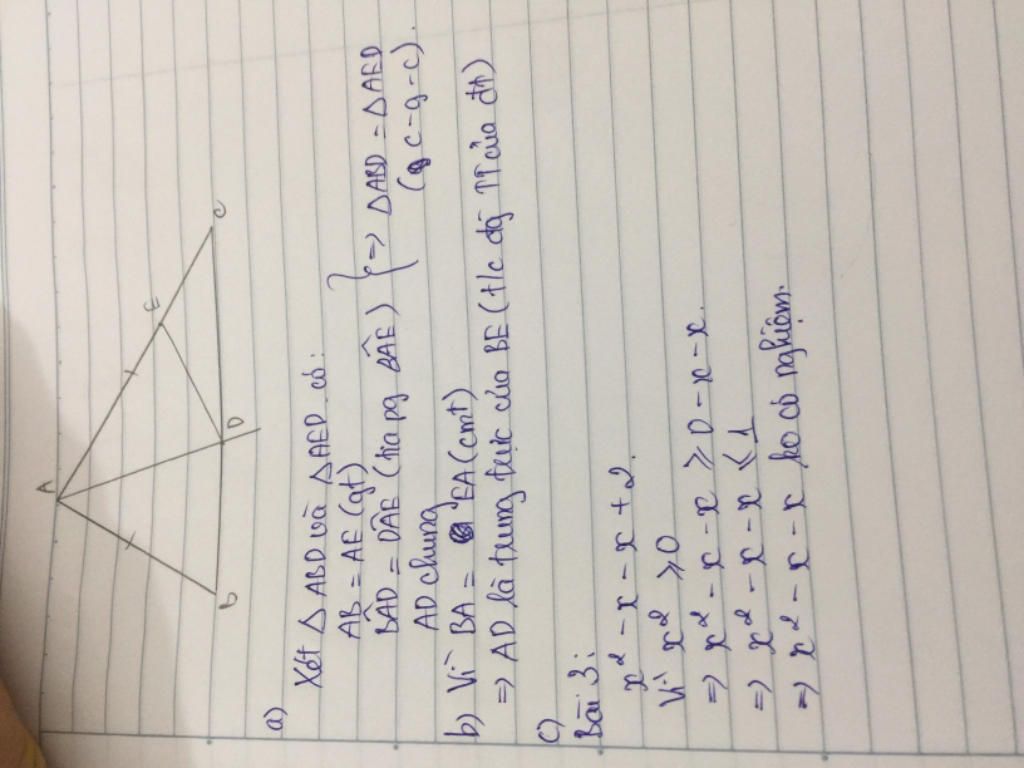 A
E
B
D
C
a)
Xét Δ ABD và Δ AED có:
AB = AE (gt)
BÂD = DÂE (tia pg BÂE) } => Δ ABD = Δ AED
AD chung (c-g-c).
b) Vì BA = EA (cmt)
=> AD là trung trực của BE (t/c đg TT của đt)
c)
Bài 3:
x² - x - x + 2.
Vì x² ≥ 0
=> x² - x - x ≥ 0 - x - x.
=> x² - x - x ≤ 1
=> x² - x - x ko có nghiệm.